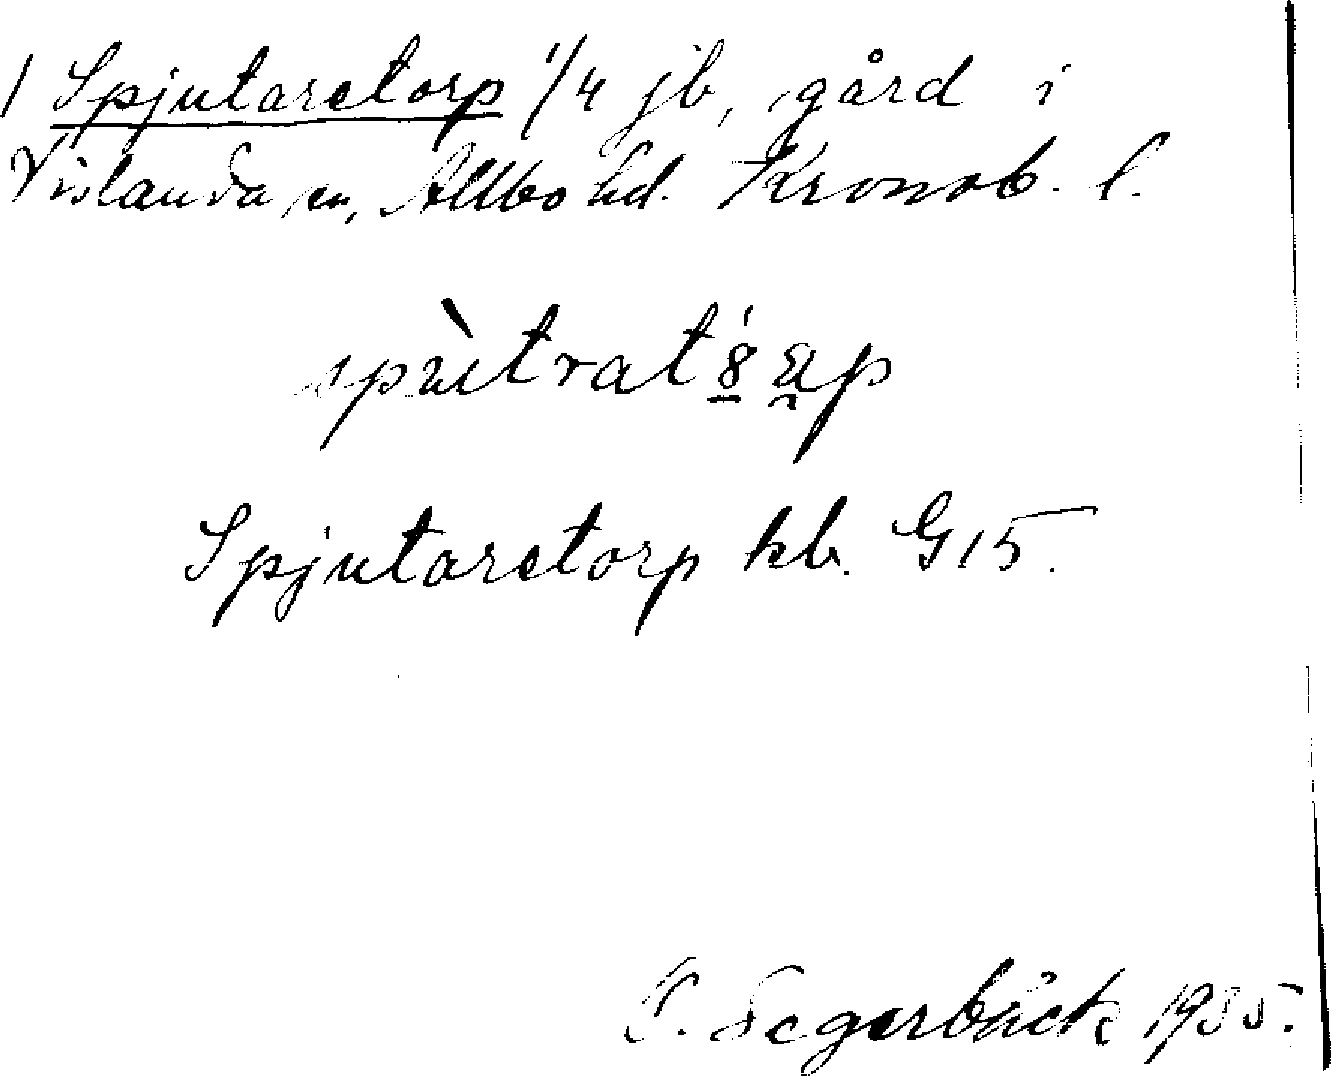 1 Spjutaretorp 1/4 jb, gård i
Vislanda sn, Allbo hd. Kronob. l.
Spjutaretorp kb. G15.
Segerbäck 1935.